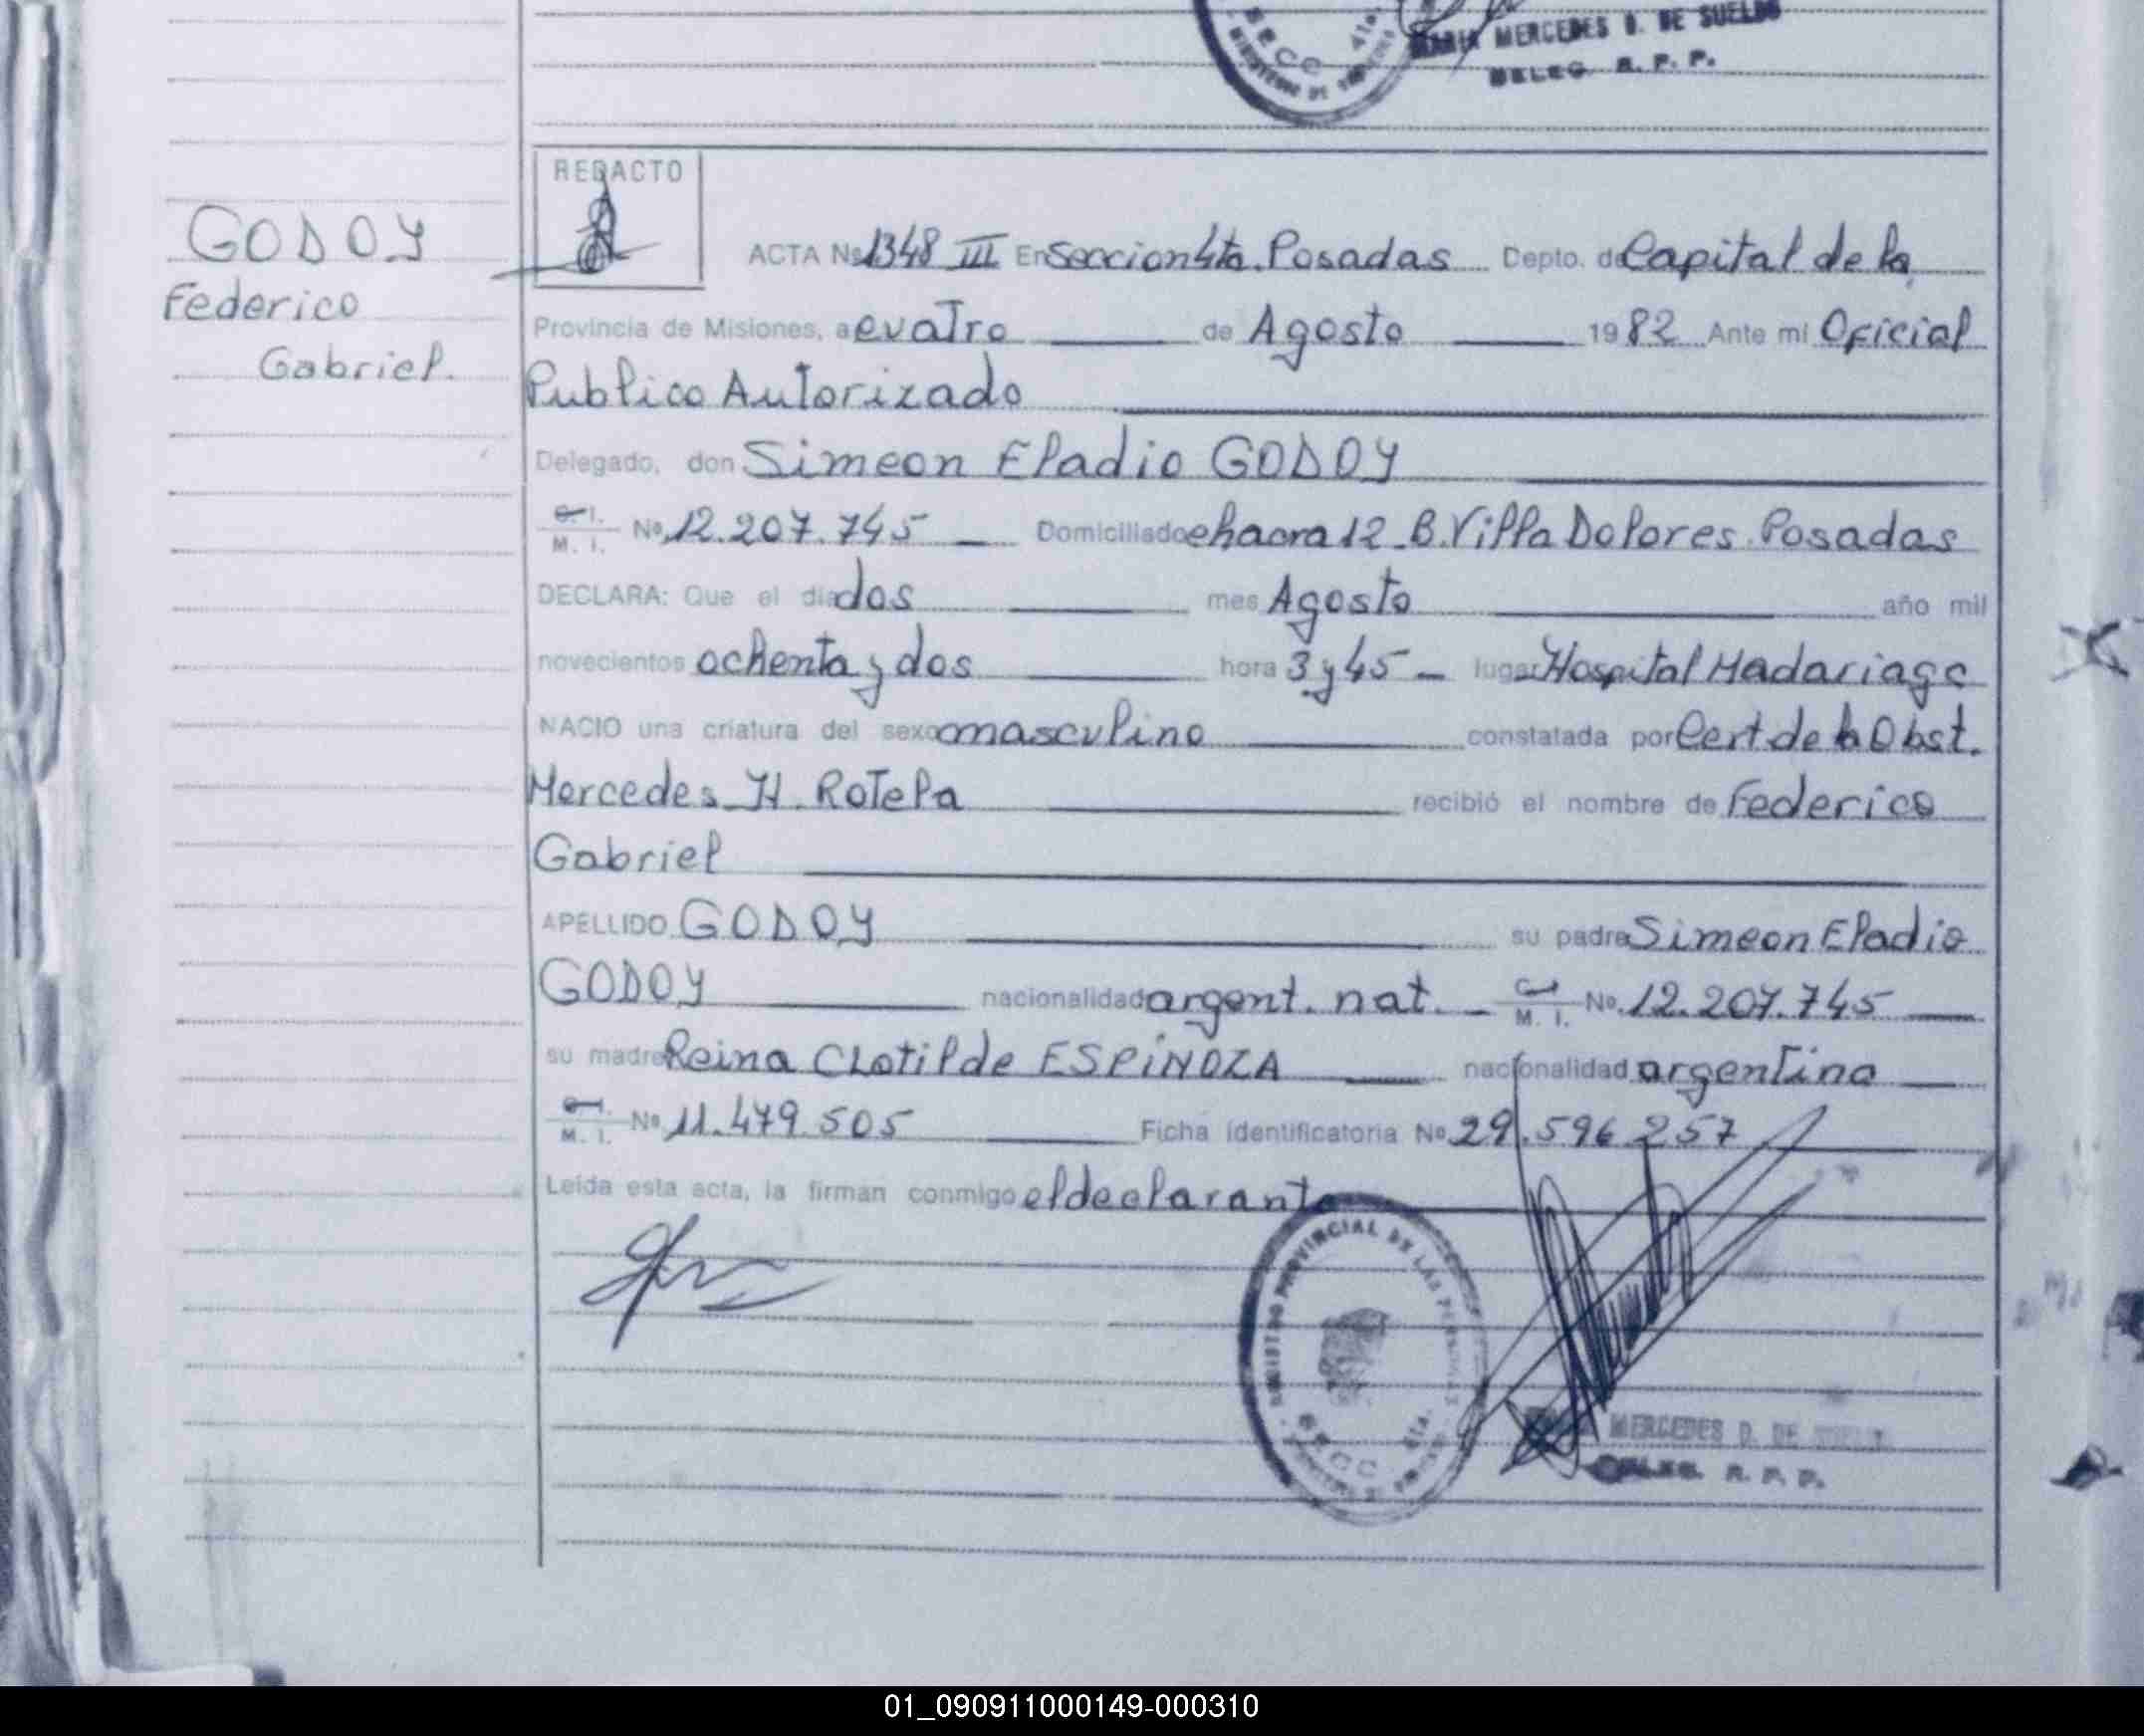 MARIA MERCEDES D. DE SUELDO
DELEG. R. P. P.
REDACTO
GODOY
Federico
Gabriel.
ACTA Nº 1348 III En Seccion 4ta. Posadas Depto. de Capital de la
Provincia de Misiones, a cuatro de Agosto 1982 Ante mi Oficial
Publico Autorizado
Delegado, don Simeon Eladio GODOY
C. I.
M. I. Nº 12.207.745 Domiciliado chacra 12 _B. Villa Dolores. Posadas
DECLARA: Que el día dos mes Agosto año mil
novecientos ochenta y dos hora 3 y 45 lugar Hospital Madariaga
NACIO una criatura del sexo masculino constatada por Cert de la Obst.
Mercedes H. Rotela recibió el nombre de Federico
Gabriel
APELLIDO GODOY su padre Simeon Eladio
GODOY nacionalidad argent. nat. C. I. M. I. Nº 12.207.745
su madre Reina Clotilde ESPINOZA nacionalidad argentina
C. I.
M. I. Nº 11.479.505 Ficha identificatoria Nº 29.596.257
Leída esta acta, la firman conmigo el declarante
REGISTRO PROVINCIAL DE LAS PERSONAS
S R C C 4ta.
MERCEDES D. DE SUELDO
DELEG. R. P. P.
01_090911000149-000310